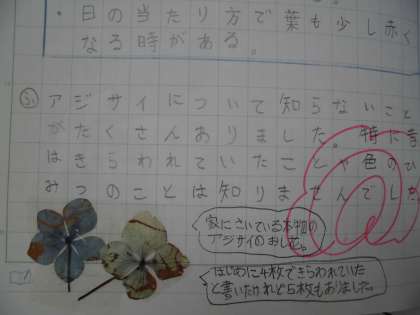 ・日の当たり方で葉も少し赤く
なる時がある。
ふ アジサイについて知らないこと
がたくさんありました。特に昔
はきらわれていたことや色のひ
みつのことは知りませんでした。
家にさいている本物の
アジサイのおし花。
はじめに4枚できらわれていた
と書いたけれど5枚もありました。